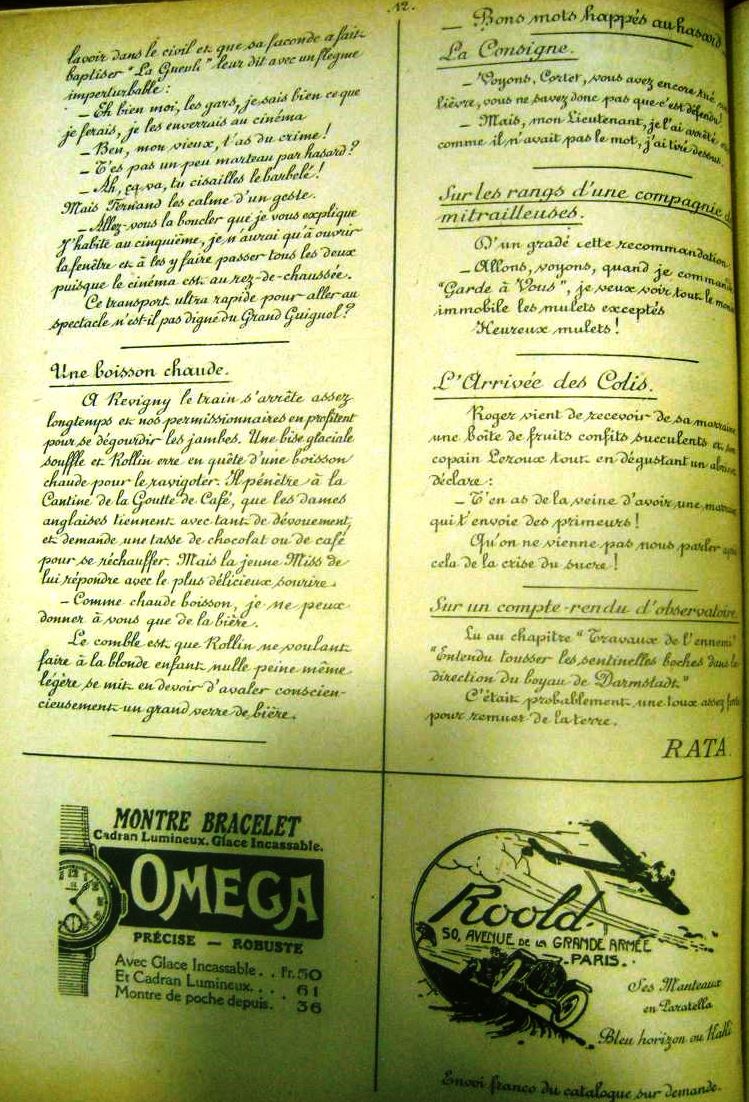 12.
lavoir dans le civil et que sa faconde a fait
baptiser "La Gueule" leur dit avec un flegme
imperturbable :
_ Eh bien moi, les gars, je sais bien ce que
je ferais, je les enverrais au cinéma
_ Ben, mon vieux, t'as du crime !
_ T'es pas un peu marteau par hasard ?
_ Ah, ça va, tu cisailles le barbelé !
Mais Fernand les calme d'un geste.
_ Allez-vous la boucler que je vous explique
J'habite au cinquième, je n'aurai qu'à ouvrir
la fenêtre et à les y faire passer tous les deux
puisque le cinéma est au rez-de-chaussée.
Ce transport ultra rapide pour aller au
spectacle n'est-il pas digne du Grand Guignol ?
Une boisson chaude.
A Revigny le train s'arrête assez
longtemps et nos permissionnaires en profitent
pour se dégourdir les jambes. Une bise glaciale
souffle et Rollin erre en quête d'une boisson
chaude pour le ravigoter. Il pénètre à la
Cantine de la Goutte de Café, que les dames
anglaises tiennent avec tant de dévouement,
et demande une tasse de chocolat ou de café
pour se réchauffer. Mais la jeune Miss de
lui répondre avec le plus délicieux sourire.
_ Comme chaude boisson, je ne peux
donner à vous que de la bière.
Le comble est que Rollin ne voulant
faire à la blonde enfant nulle peine même
légère se mit en devoir d'avaler conscien-
cieusement un grand verre de bière.
_ Bons mots happés au hasard
La Consigne.
_ Voyons, Cortet, vous avez encore tué
lièvre, vous ne savez donc pas que c'est défendu !
_ Mais, mon Lieutenant, je l'ai arrêté et
comme il n'avait pas le mot, j'ai tiré dessus.
Sur les rangs d'une compagnie de
mitrailleuses.
D'un gradé cette recommandation
_ Allons, voyons, quand je commande
"Garde à Vous", je veux voir tout le monde
immobile les mulets exceptés
Heureux mulets !
L'Arrivée des Colis.
Roger vient de recevoir de sa marraine
une boîte de fruits confits succulents et son
copain Leroux tout en dégustant un abricot
déclare :
_ T'en as de la veine d'avoir une marraine
qui t'envoie des primeurs !
Qu'on ne vienne pas nous parler après
cela de la crise du sucre !
Sur un compte-rendu d'observatoire.
Lu au chapitre "Travaux de l'ennemi"
"Entendu tousser les sentinelles boches dans la
direction du boyau de Darmstadt."
C'était probablement une toux assez forte
pour remuer de la terre.
RATA.
MONTRE BRACELET
Cadran Lumineux. Glace Incassable.
OMEGA
PRÉCISE — ROBUSTE
Avec Glace Incassable . . Fr. 50
Et Cadran Lumineux . . . 61
Montre de poche depuis . 36
Roold
50, AVENUE DE LA GRANDE ARMÉE
. PARIS . .
Ses Manteaux
en Paratella
Bleu horizon ou Kaki
Envoi franco du catalogue sur demande.